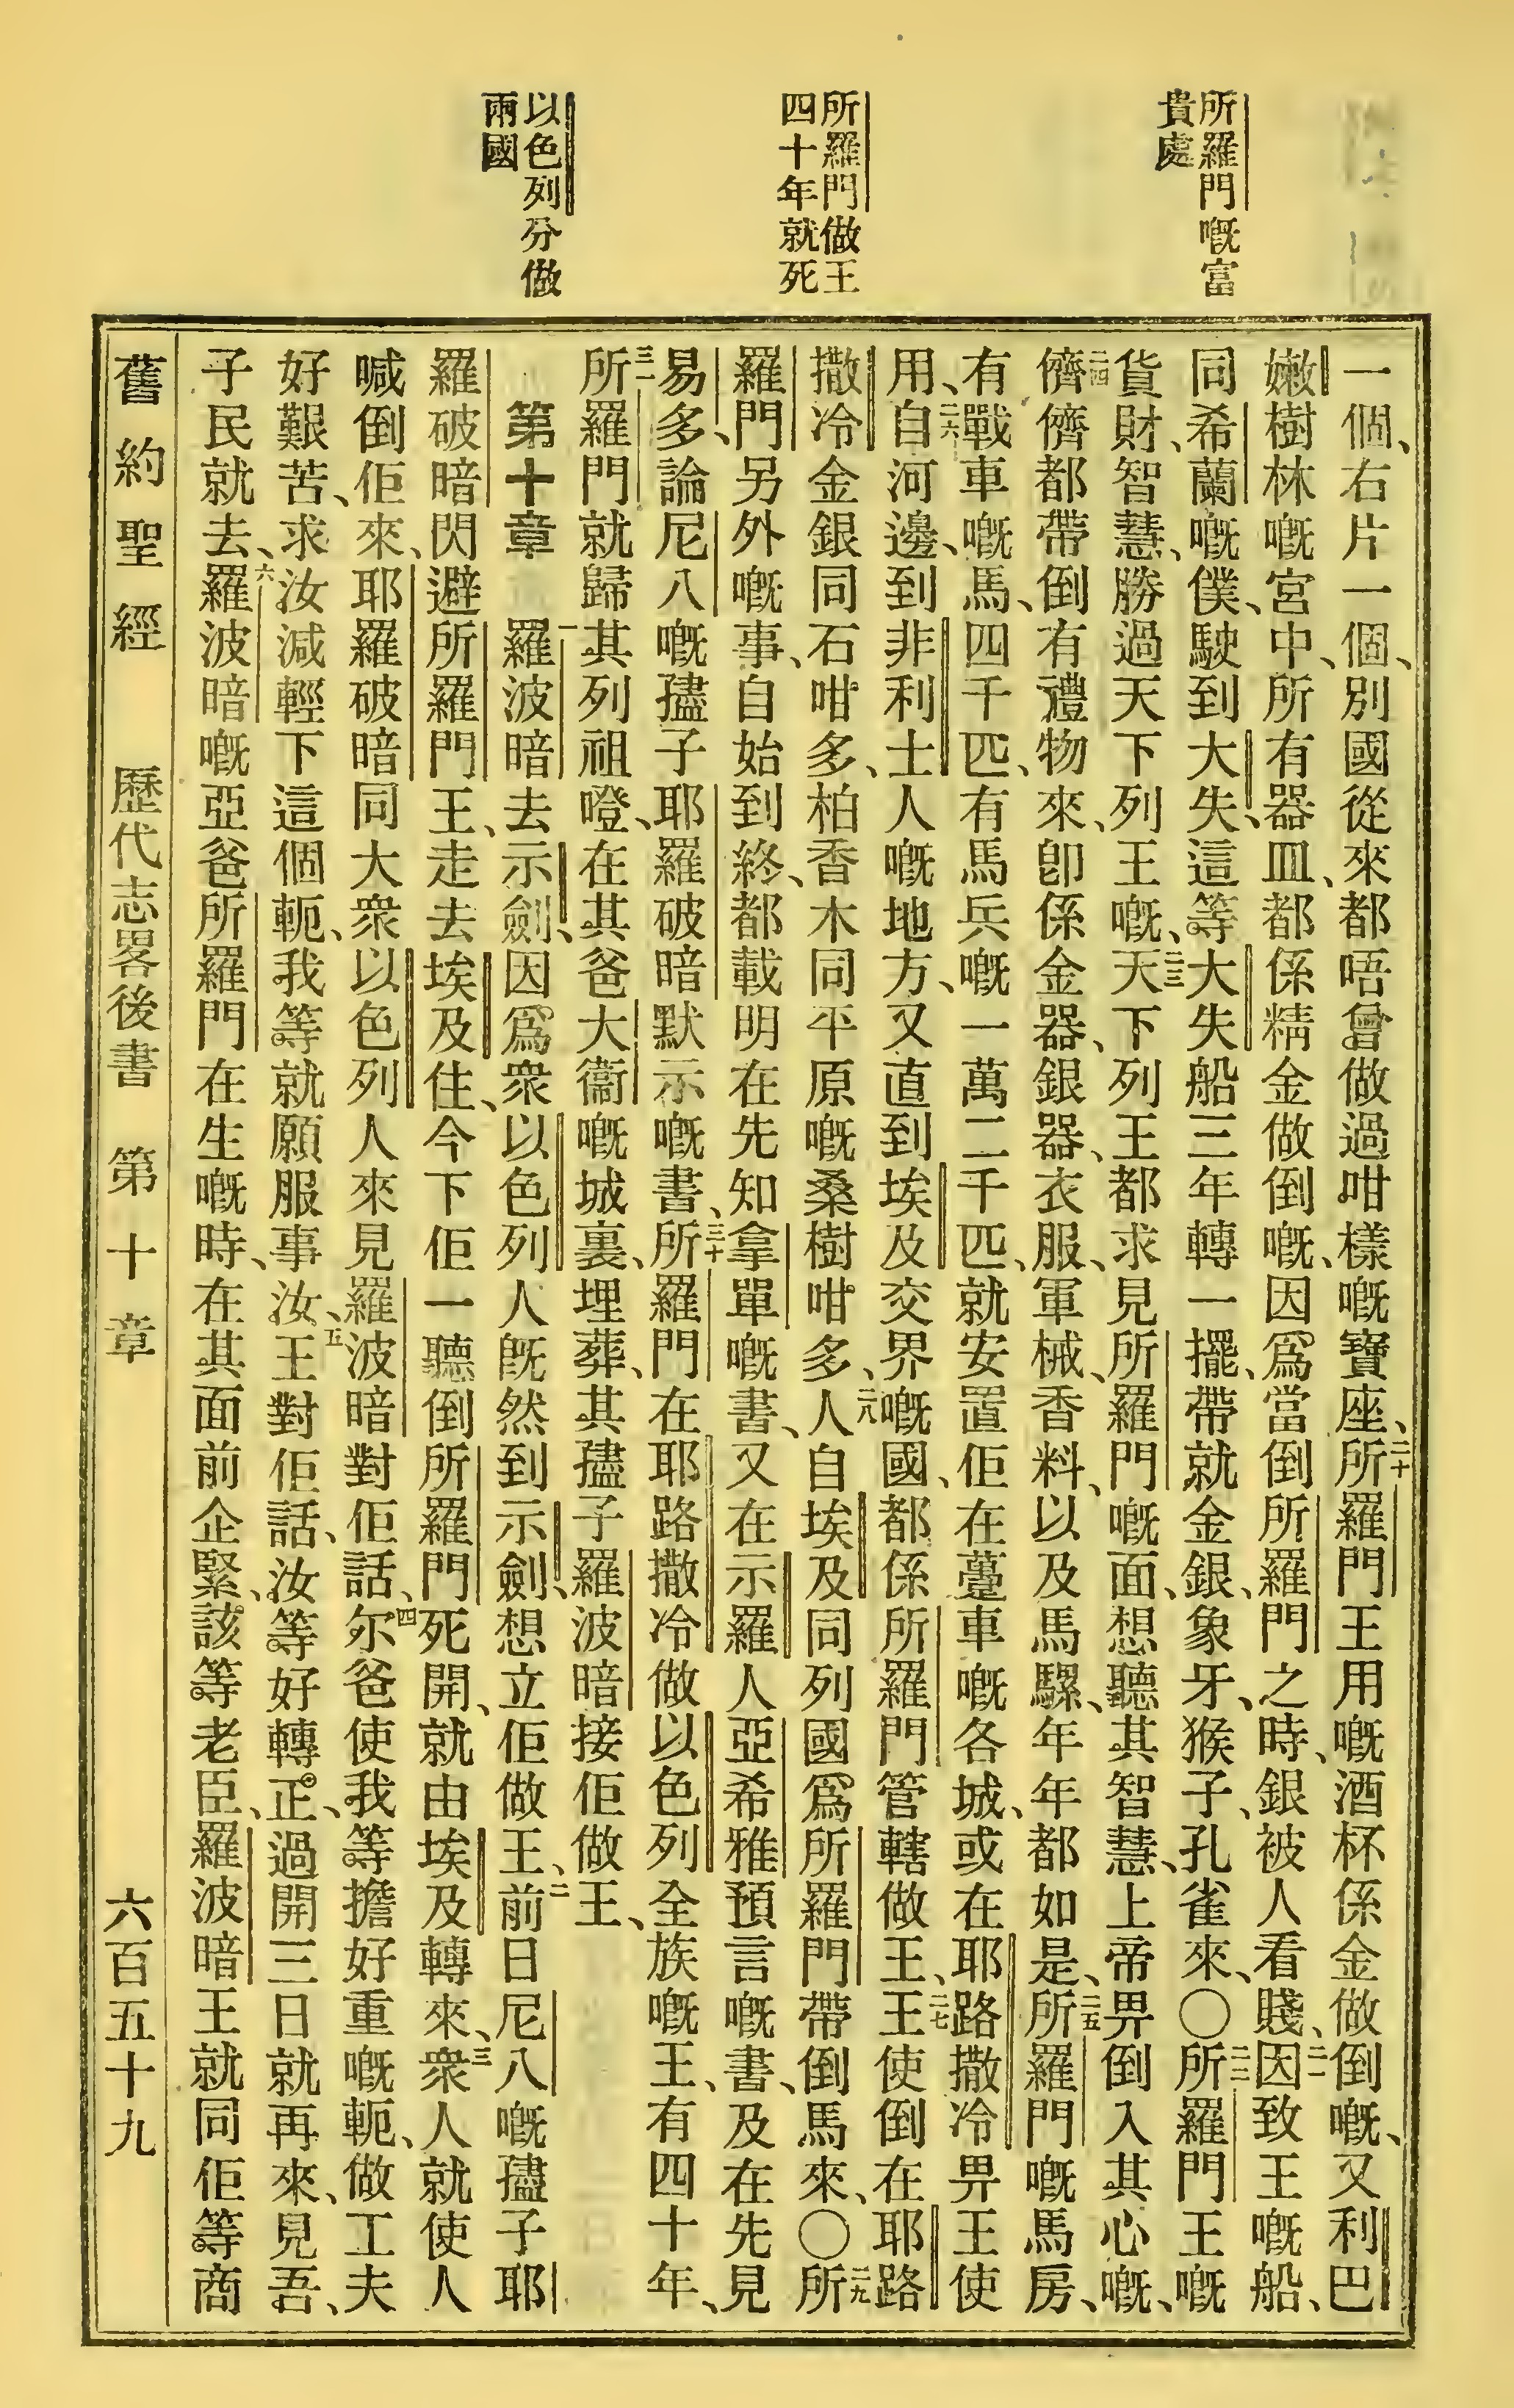 所羅門嘅富
貴處
所羅門做王
四十年就死
以色列分做
兩國
一個、右片一個、別國從來都唔曾做過咁樣嘅寶座、二十所羅門王用嘅酒杯係金做倒嘅、又利巴
嫩樹林嘅宮中、所有器皿、都係精金做倒嘅、因爲當倒所羅門之時、銀被人看賤、二一因致王嘅船、
同希蘭嘅僕、駛到大失、這等大失船三年轉一擺、帶就金銀、象牙、猴子、孔雀來、〇二二所羅門王嘅
貨財、智慧、勝過天下列王嘅、二三天下列王都求見所羅門嘅面、想聽其智慧、上帝畀倒入其心嘅、
二四儕儕都帶倒有禮物來、卽係金器、銀器、衣服、軍械、香料、以及馬騾、年年都如是、二五所羅門嘅馬房、
有戰車嘅馬、四千匹、有馬兵嘅一萬二千匹、就安置佢在躉車嘅各城、或在耶路撒冷畀王使
用、二六自河邊、到非利士人嘅地方、又直到埃及交界嘅國、都係所羅門管轄做王、二七王使倒在耶路
撒冷金銀同石咁多、柏香木同平原嘅桑樹咁多、二八人自埃及同列國爲所羅門帶倒馬來、〇二九所
羅門另外嘅事、自始到終、都載明在先知拿單嘅書、又在示羅人亞希雅預言嘅書、及在先見
易多、論尼八嘅孻子耶羅破暗默示嘅書、三十所羅門在耶路撒冷做以色列全族嘅王、有四十年、
三一所羅門就歸其列祖噔、在其爸大衞嘅城裏、埋葬、其孻子羅波暗接佢做王、
第十章 一羅波暗去示劍、因爲衆以色列人旣然到示劍、想立佢做王、二前日尼八嘅孻子耶
羅破暗閃避所羅門王、走去埃及住、今下佢一聽倒所羅門死開、就由埃及轉來、三衆人就使人
喊倒佢來、耶羅破暗同大衆以色列人來見羅波暗對佢話、四尔爸使我等擔好重嘅軛、做工夫
好艱苦、求汝減輕下這個軛、我等就願服事汝、五王對佢話、汝等好轉正、過開三日就再來、見吾、
子民就去、六羅波暗嘅亞爸所羅門在生嘅時、在其面前企緊、該等老臣、羅波暗王就同佢等商
舊約聖經 歷代志畧後書 第十章 六百五十九